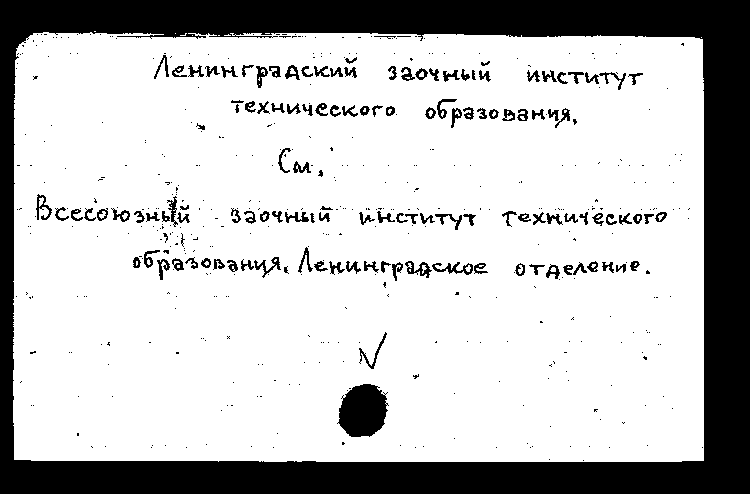 Ленинградский заочный институт
технического образования.
См.
Всесоюзный заочный институт технического
образования. Ленинградское отделение.